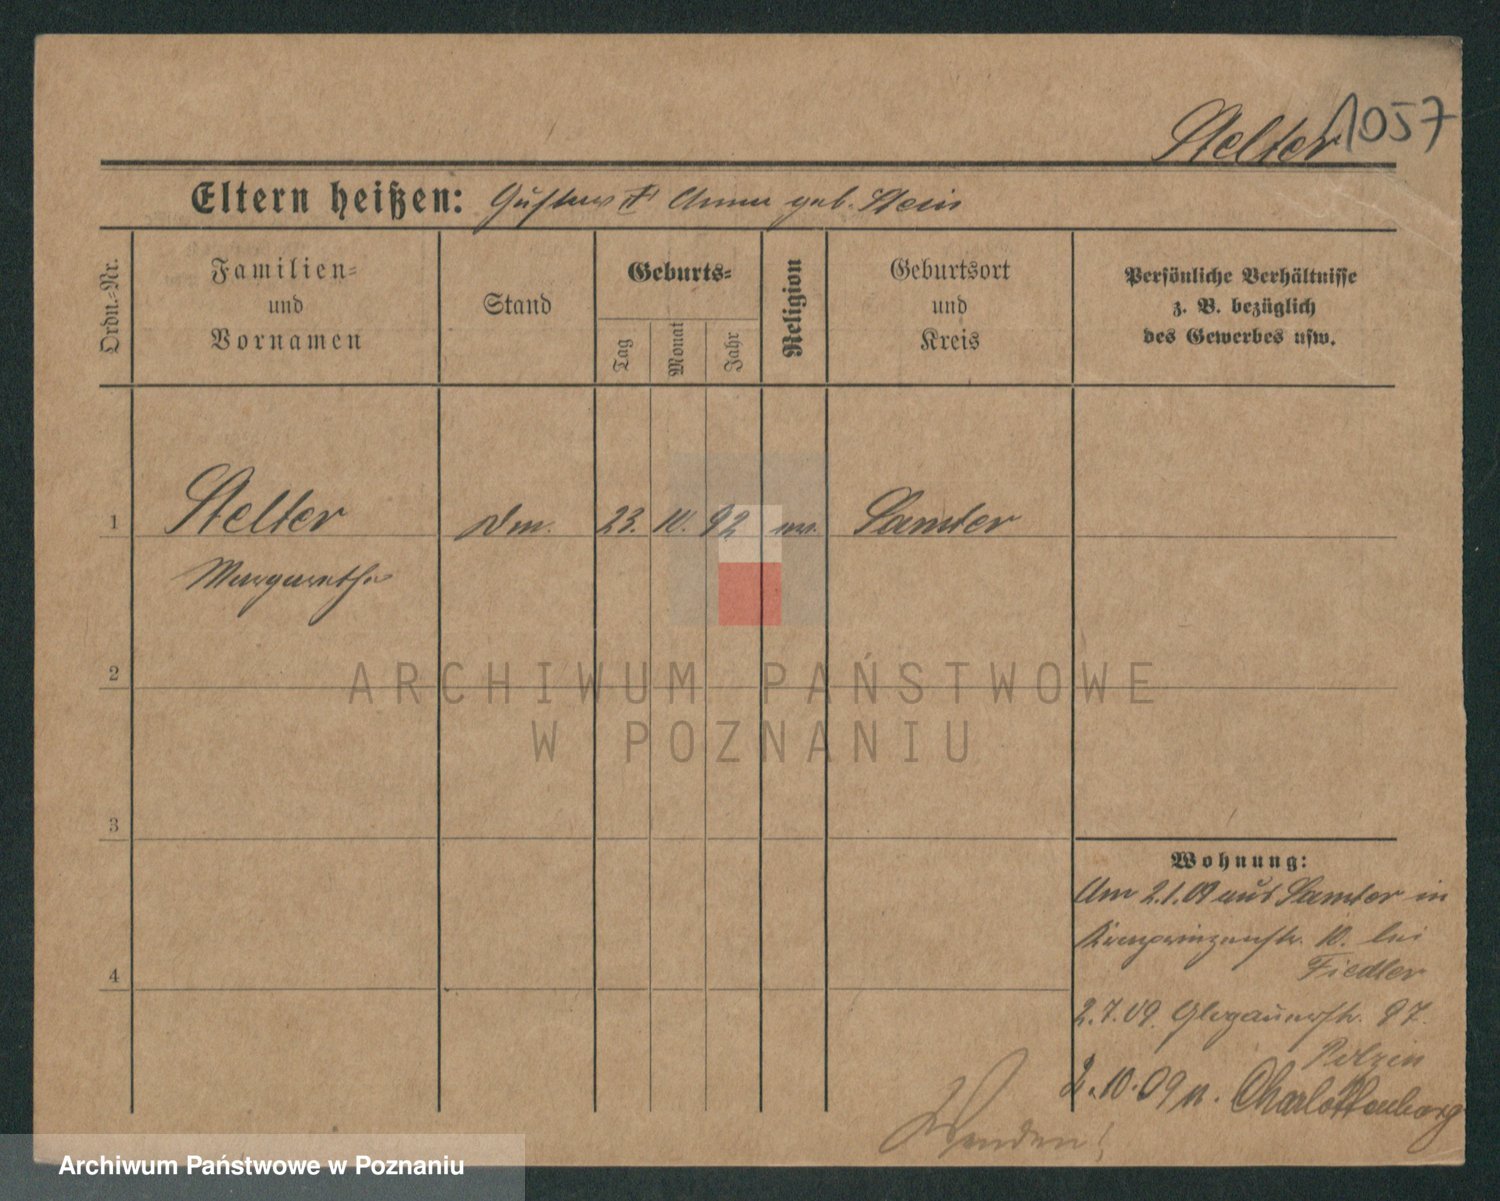 Stelter 1057
Eltern heißen: Gustav & Anna geb. Stein
Ordn.-Nr.
Familien-
und
Vornamen
Stand
Geburts-
Tag
Monat
Jahr
Religion
Geburtsort
und
Kreis
Persönliche Verhältnisse
z. B. bezüglich
des Gewerbes usw.
1 Stelter 23. 10. 92 Samter
Margarethe
2
ARCHIWUM PAŃSTWOWE
W POZNANIU
3
Wohnung:
Am 2.1.09 aus Samter in
Kronprinzenstr. 10. bei
Fiedler
4
2.7.09. Glogauerstr. 97.
Polzin
2.10.09 n. Charlottenburg
Wenden!
Archiwum Państwowe w Poznaniu